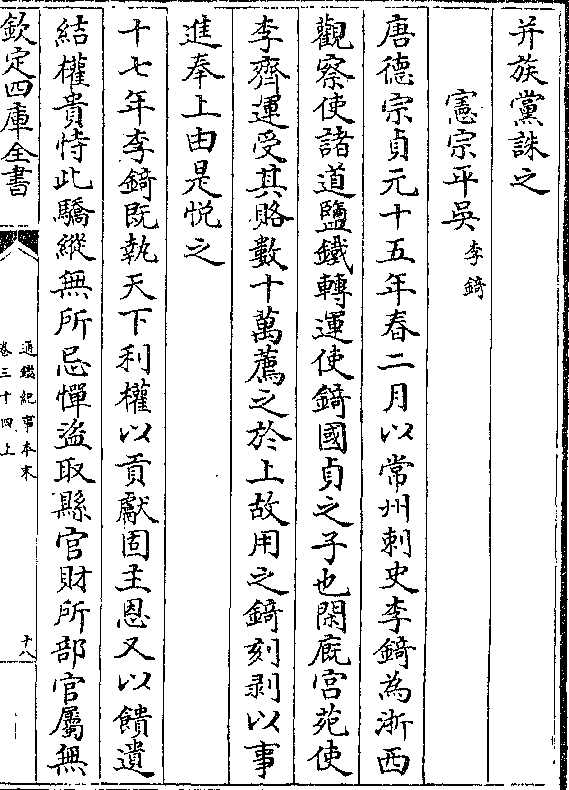 并族黨誅之
憲宗平吳 李錡
唐德宗貞元十五年春二月以常州刺史李錡為浙西
觀察使諸道鹽鐵轉運使錡國貞之子也閑廐宫苑使
李齊運受其賂數十萬薦之於上故用之錡刻剥以事
進奉上由是悦之
十七年李錡既執天下利權以貢獻固主恩又以饋遺
結權貴恃此驕縱無所忌憚盗取縣官財所部官屬無
欽定四庫全書
通鑑紀事本末
卷三十四上
十八